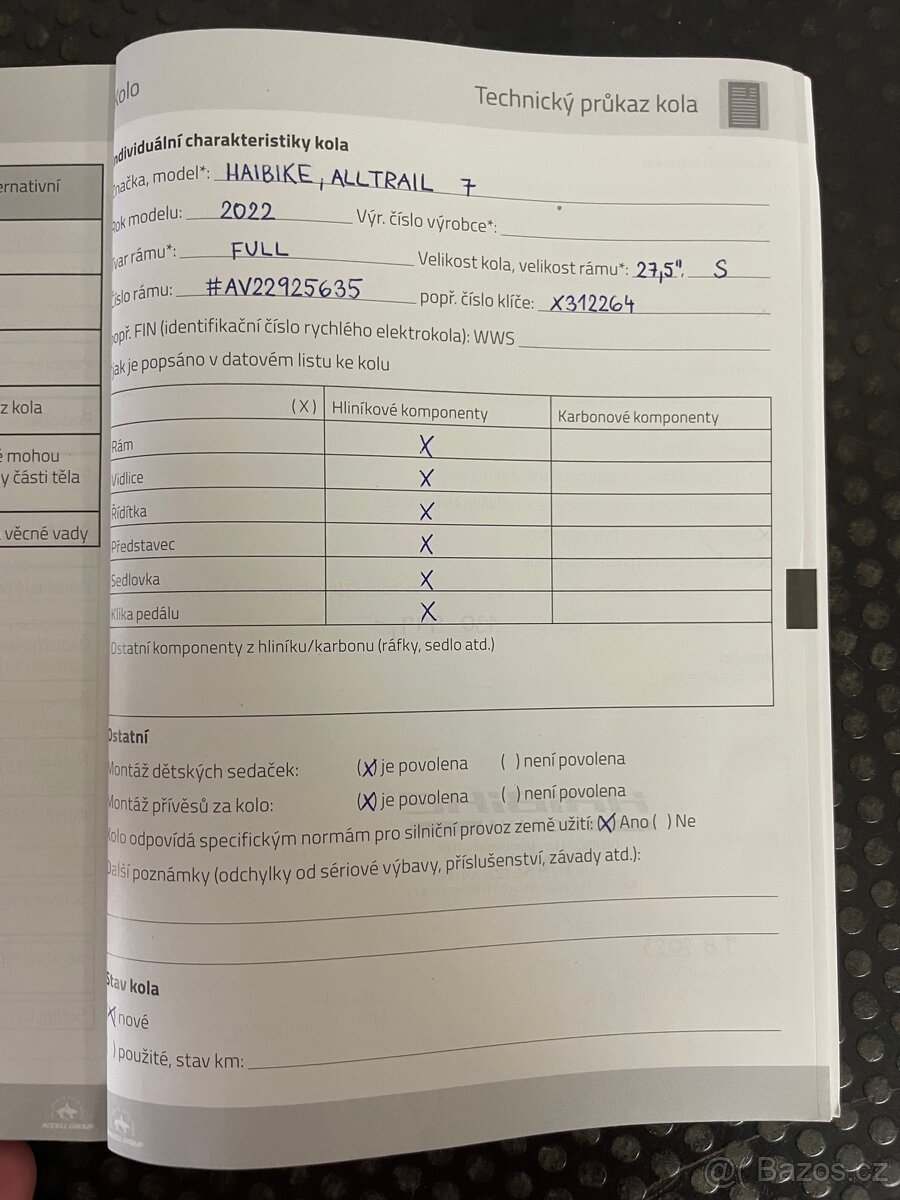 Kolo
Technický průkaz kola
Individuální charakteristiky kola
Značka, model*: HAIBIKE, ALLTRAIL 7
Rok modelu: 2022 Výr. číslo výrobce*:
Tvar rámu*: FULL Velikost kola, velikost rámu*: 27,5", S
Číslo rámu: #AV22925635 popř. číslo klíče: X312264
popř. FIN (identifikační číslo rychlého elektrokola): WWS
jak je popsáno v datovém listu ke kolu
(X) Hliníkové komponenty Karbonové komponenty
Rám X
Vidlice X
Řídítka X
Představec X
Sedlovka X
Klika pedálu X
Ostatní komponenty z hliníku/karbonu (ráfky, sedlo atd.)
Ostatní
Montáž dětských sedaček: (X) je povolena ( ) není povolena
Montáž přívěsů za kolo: (X) je povolena ( ) není povolena
Kolo odpovídá specifickým normám pro silniční provoz země užití: (X) Ano ( ) Ne
Další poznámky (odchylky od sériové výbavy, příslušenství, závady atd.):
Stav kola
X) nové
) použité, stav km:
ernativní
z kola
é mohou
y části těla
věcné vady
@ Bazos.cz